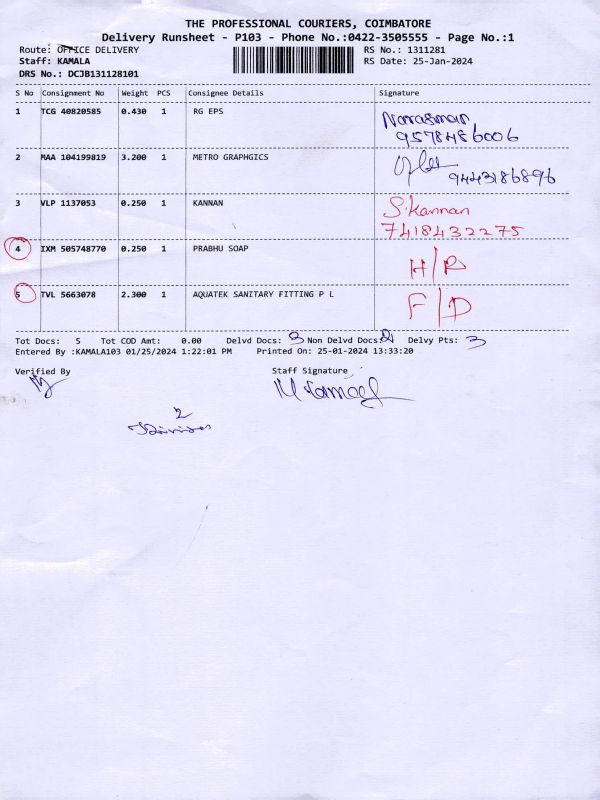 THE PROFESSIONAL COURIERS, COIMBATORE
Delivery Runsheet - P103 - Phone No.:0422-3505555 - Page No.:1
Route: OFFICE DELIVERY RS No.: 1311281
Staff: KAMALA RS Date: 25-Jan-2024
DRS No.: DCJB131128101
S No Consignment No Weight PCS Consignee Details Signature
1 TCG 40820585 0.430 1 RG EPS Narasman
9578486006
2 MAA 104199819 3.200 1 METRO GRAPHGICS
9443186896
3 VLP 1137053 0.250 1 KANNAN S.kannan
7418432275
4 IXM 505748770 0.250 1 PRABHU SOAP H/R
5 TVL 5663078 2.300 1 AQUATEK SANITARY FITTING P L F/D
Tot Docs: 5 Tot COD Amt: 0.00 Delvd Docs: 3 Non Delvd Docs: 2 Delvy Pts: 3
Entered By :KAMALA103 01/25/2024 1:22:01 PM Printed On: 25-01-2024 13:33:20
Verified By Staff Signature
2